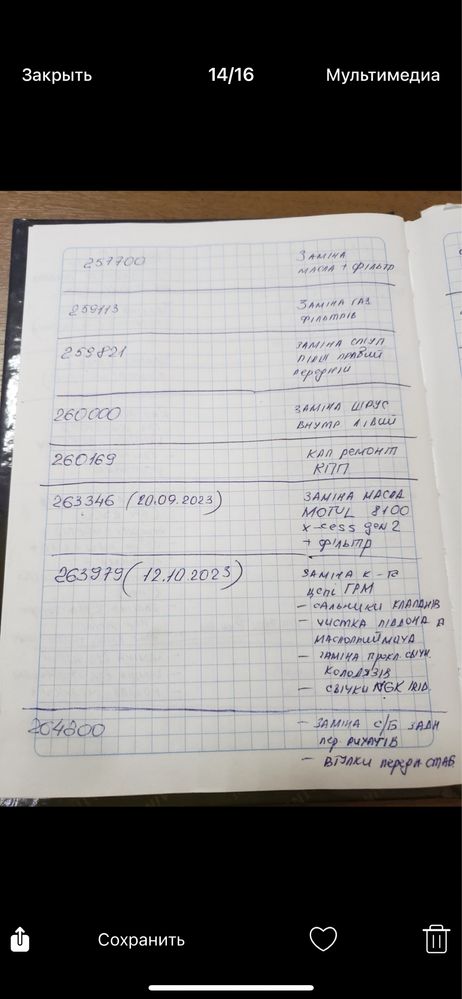 Закрыть
14/16
Мультимедиа
257700
Заміна
масла + фільтр
259113
Заміна газ
фільтрів
259821
заміна ступ
підш правий
передній
260000
заміна шрус
внутр лівий
260169
кап ремонт
КПП
263346 (20.09.2023)
заміна масла
MOTUL 8100
x-cess gen 2
+ фільтр
263979 (12.10.2023)
заміна к-та
цепі ГРМ
- сальники клапанів
- чистка піддона
маслоприймача
- заміна прокл. свічн.
колодязів
- свічки NGK IRID.
264200
- заміна с/б задн
пер
- втулки передн стаб
Сохранить